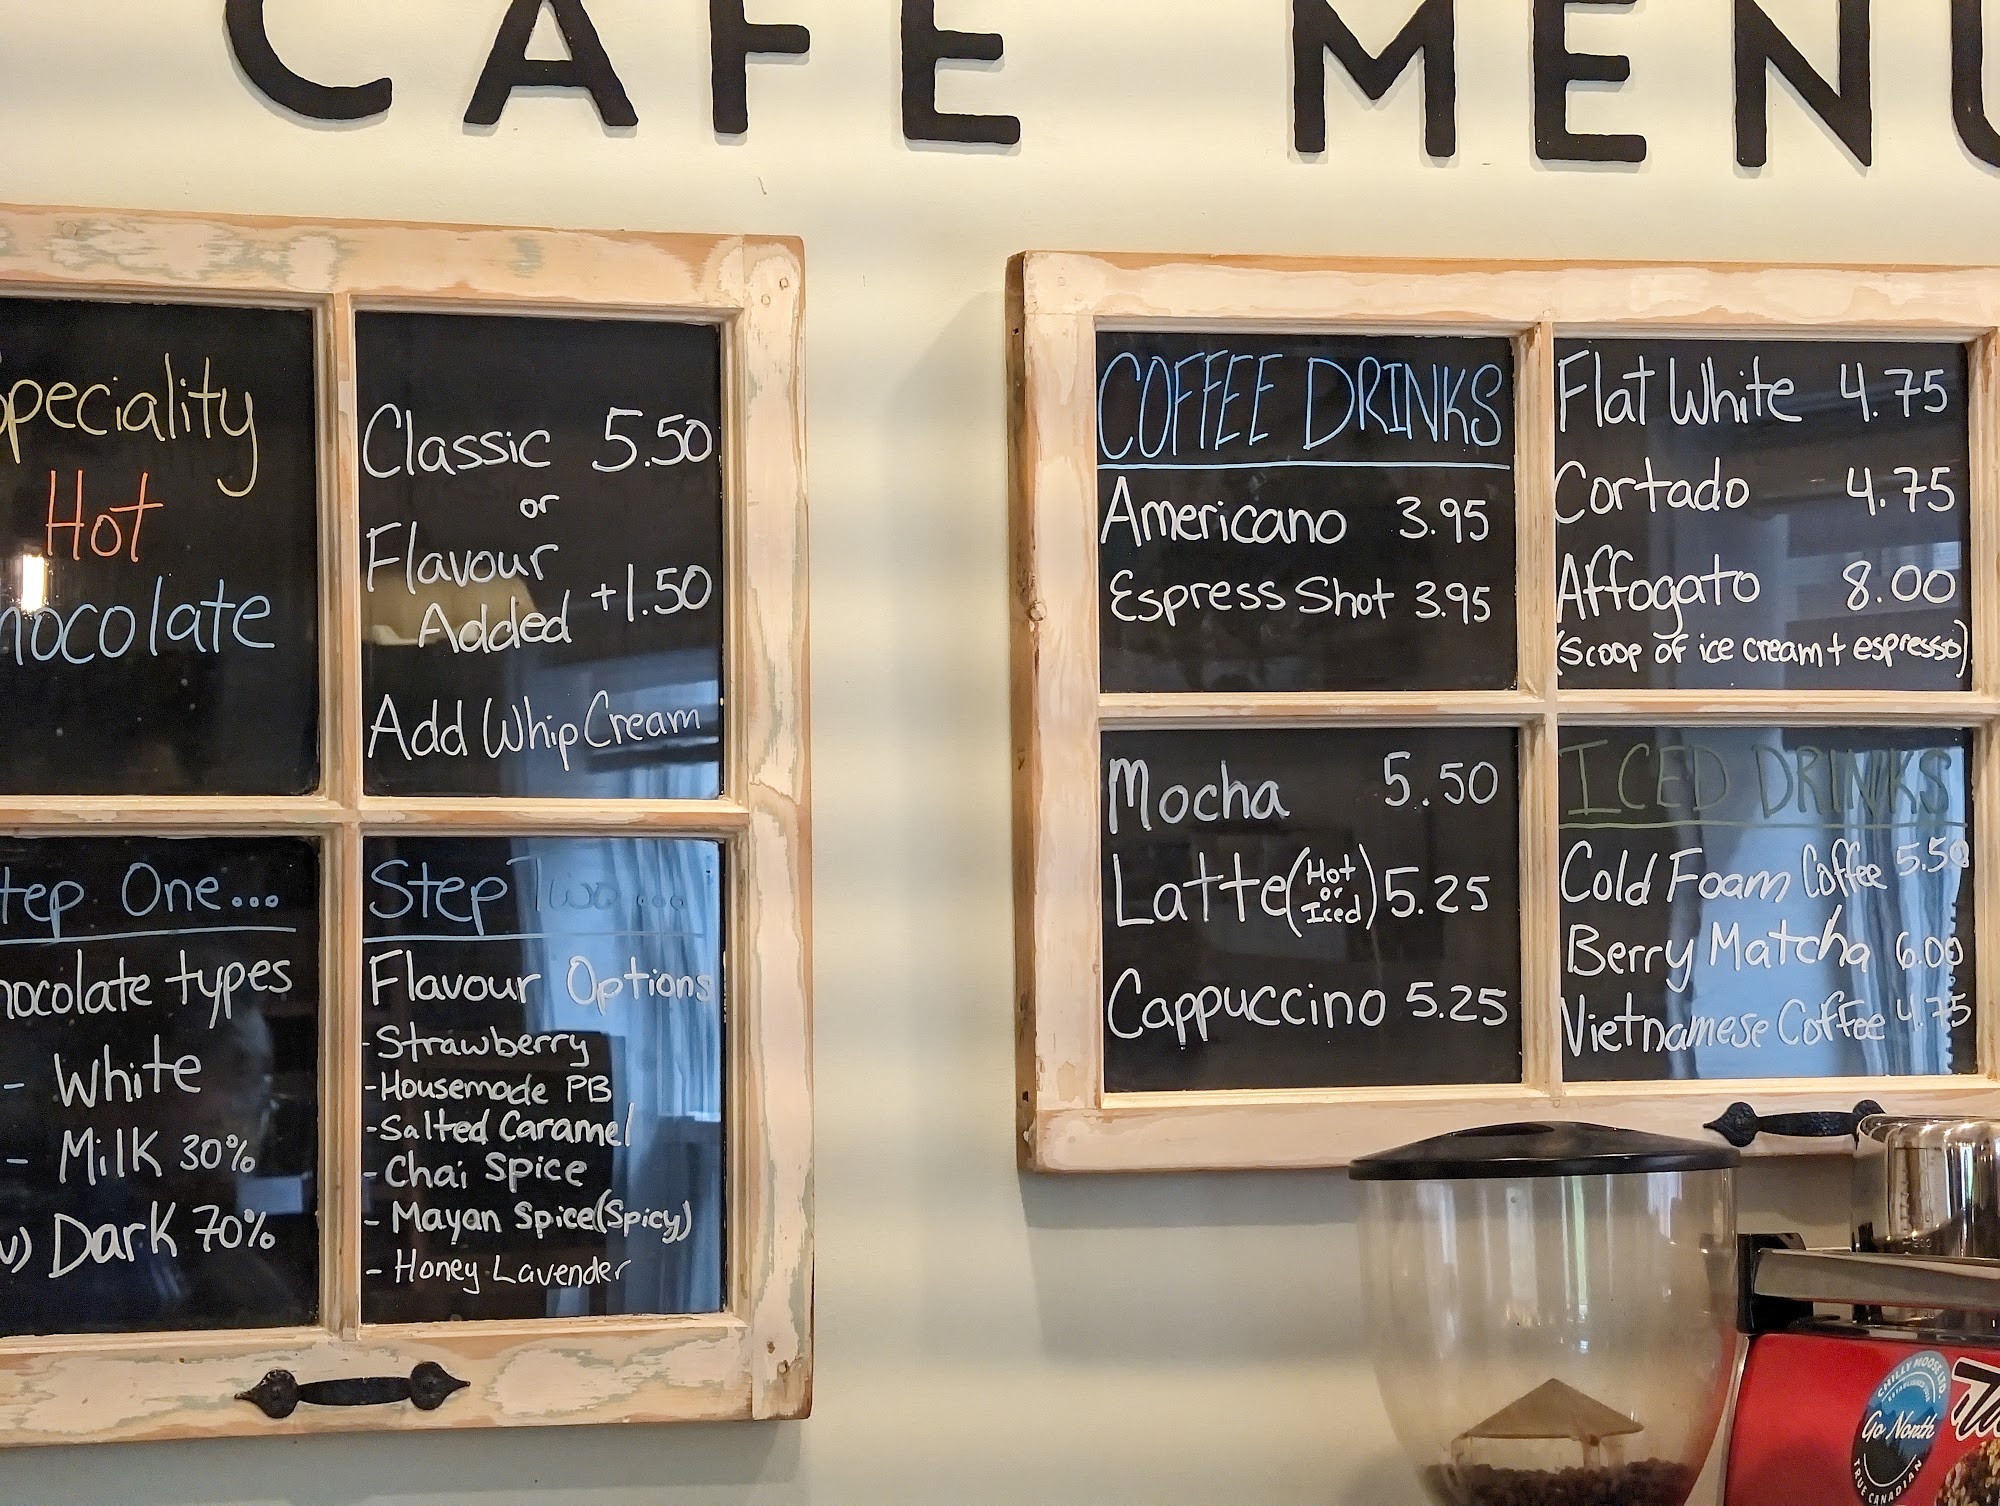 CAFE MENU
Speciality
Hot
Chocolate
Classic 5.50
or
Flavour
Added +1.50
Add Whip Cream
Step One...
Chocolate types
- White
- Milk 30%
Dark 70%
Step Two...
Flavour Options
- Strawberry
- Housemade PB
- Salted Caramel
- Chai Spice
- Mayan Spice (Spicy)
- Honey Lavender
COFFEE DRINKS
Americano 3.95
Espress Shot 3.95
Flat White 4.75
Cortado 4.75
Affogato 8.00
(Scoop of ice cream + espresso)
Mocha 5.50
Latte (Hot or Iced) 5.25
Cappuccino 5.25
ICED DRINKS
Cold Foam Coffee 5.50
Berry Matcha 6.00
Vietnamese Coffee 4.75
CHILLY MOOSE LTD
Go North
TRUE CANADIAN